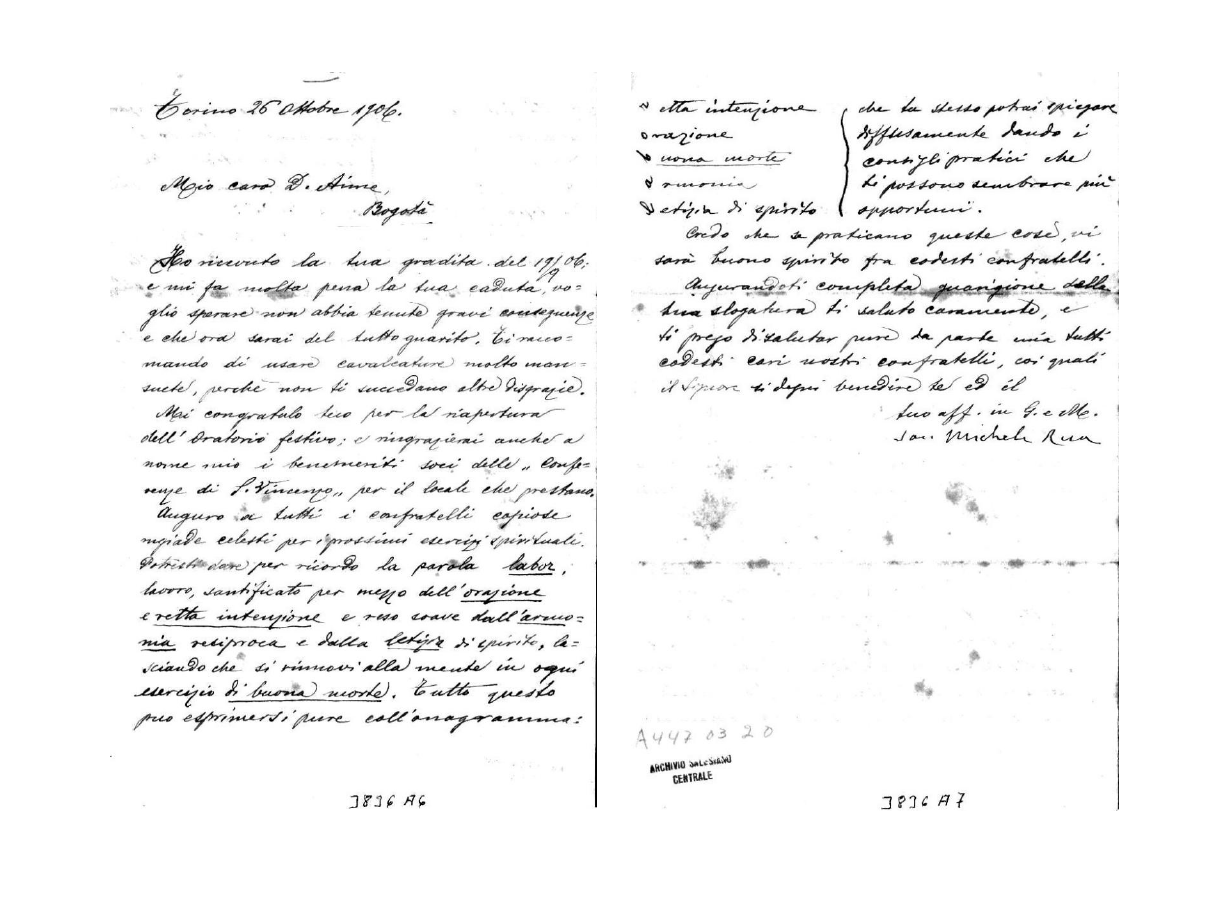 Torino 26 Ottobre 1906.
Mio caro D. Aime,
Bogotà
Ho ricevuto la tua gradita del 19/9 06;
e mi fa molta pena la tua caduta, vo=
glio sperare non abbia tenute gravi conseguenze
e che ora sarai del tutto guarito. Ti racco=
mando di usare cavalcature molto man=
suete, perchè non ti succedano altre disgrazie.
Mi congratulo teco per la riapertura
dell'Oratorio festivo; e ringrazierai anche a
nome mio i benemeriti soci delle „ Confe=
renze di S. Vincenzo „ per il locale che prestano.
Auguro a tutti i confratelli copiose
rugiade celesti per i prossimi esercizi spirituali.
Potresti dare per ricordo la parola labor,
lavoro, santificato per mezzo dell'orazione
e retta intenzione e reso soave dall'armo=
nia reciproca e dalla letizia di spirito, la=
sciando che si rinnovi alla mente in ogni
esercizio di buona morte. Tutto questo
può esprimersi pure coll'anagramma:
3836 A6
retta intenzione
orazione
buona morte
armonia
letizia di spirito
che tu stesso potrai spiegare
diffusamente dando i
consigli pratici che
ti possono sembrare più
opportuni.
Credo che se praticano queste cose, vi
sarà buono spirito fra codesti confratelli.
Augurandoti completa guarigione della
tua slogatura ti saluto caramente, e
ti prego di salutar pure da parte mia tutti
codesti cari nostri confratelli, coi quali
il Signore si degni benedire te ed il
tuo aff. in G. e M.
Sac. Michele Rua
A447 03 20
ARCHIVIO SALESIANO
CENTRALE
3836 A7